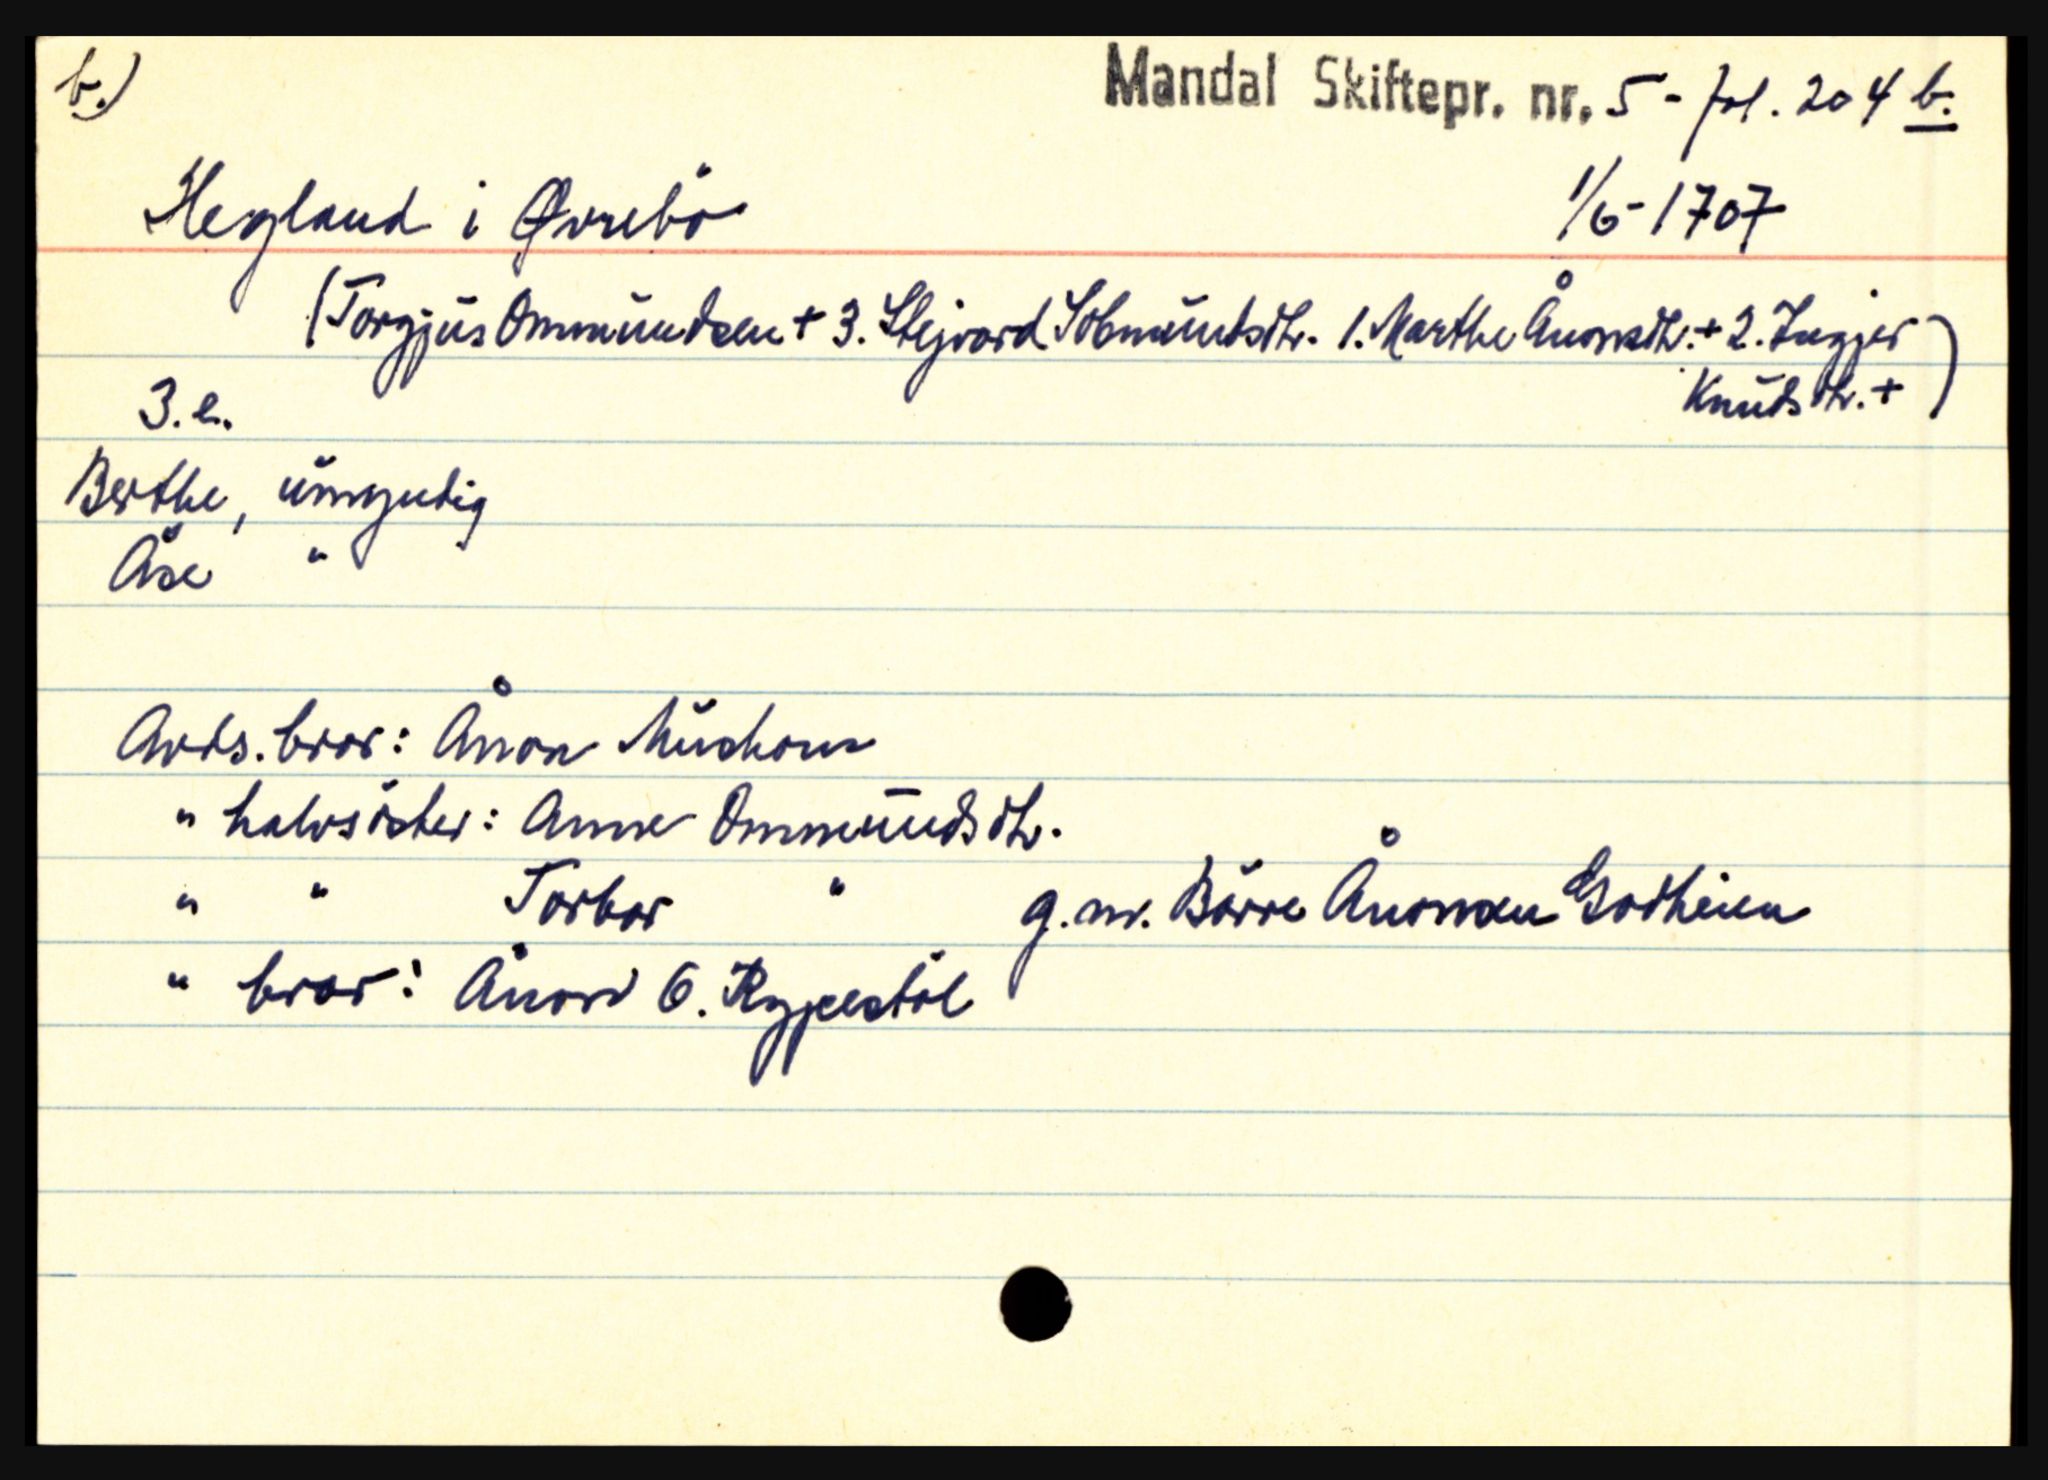 b.)
Mandal Skiftepr. nr. 5 - fol. 204 b.
Hegland i Øvrebö
1/6-1707
(Torgjus Ommundsen + 3. Stejvord Sobmundsdtr. 1. Marthe Ånonsdtr. + 2. Ingjer
Knudsdtr. +)
3. e.
Berthe, umyndig
Åse "
Avds. bror: Ånon
" halvsöster: Anne Ommundsdtr.
" " Torbor " g. m. Börre Ånonsen Godheien
" bror: Ånon O. Rypestöl